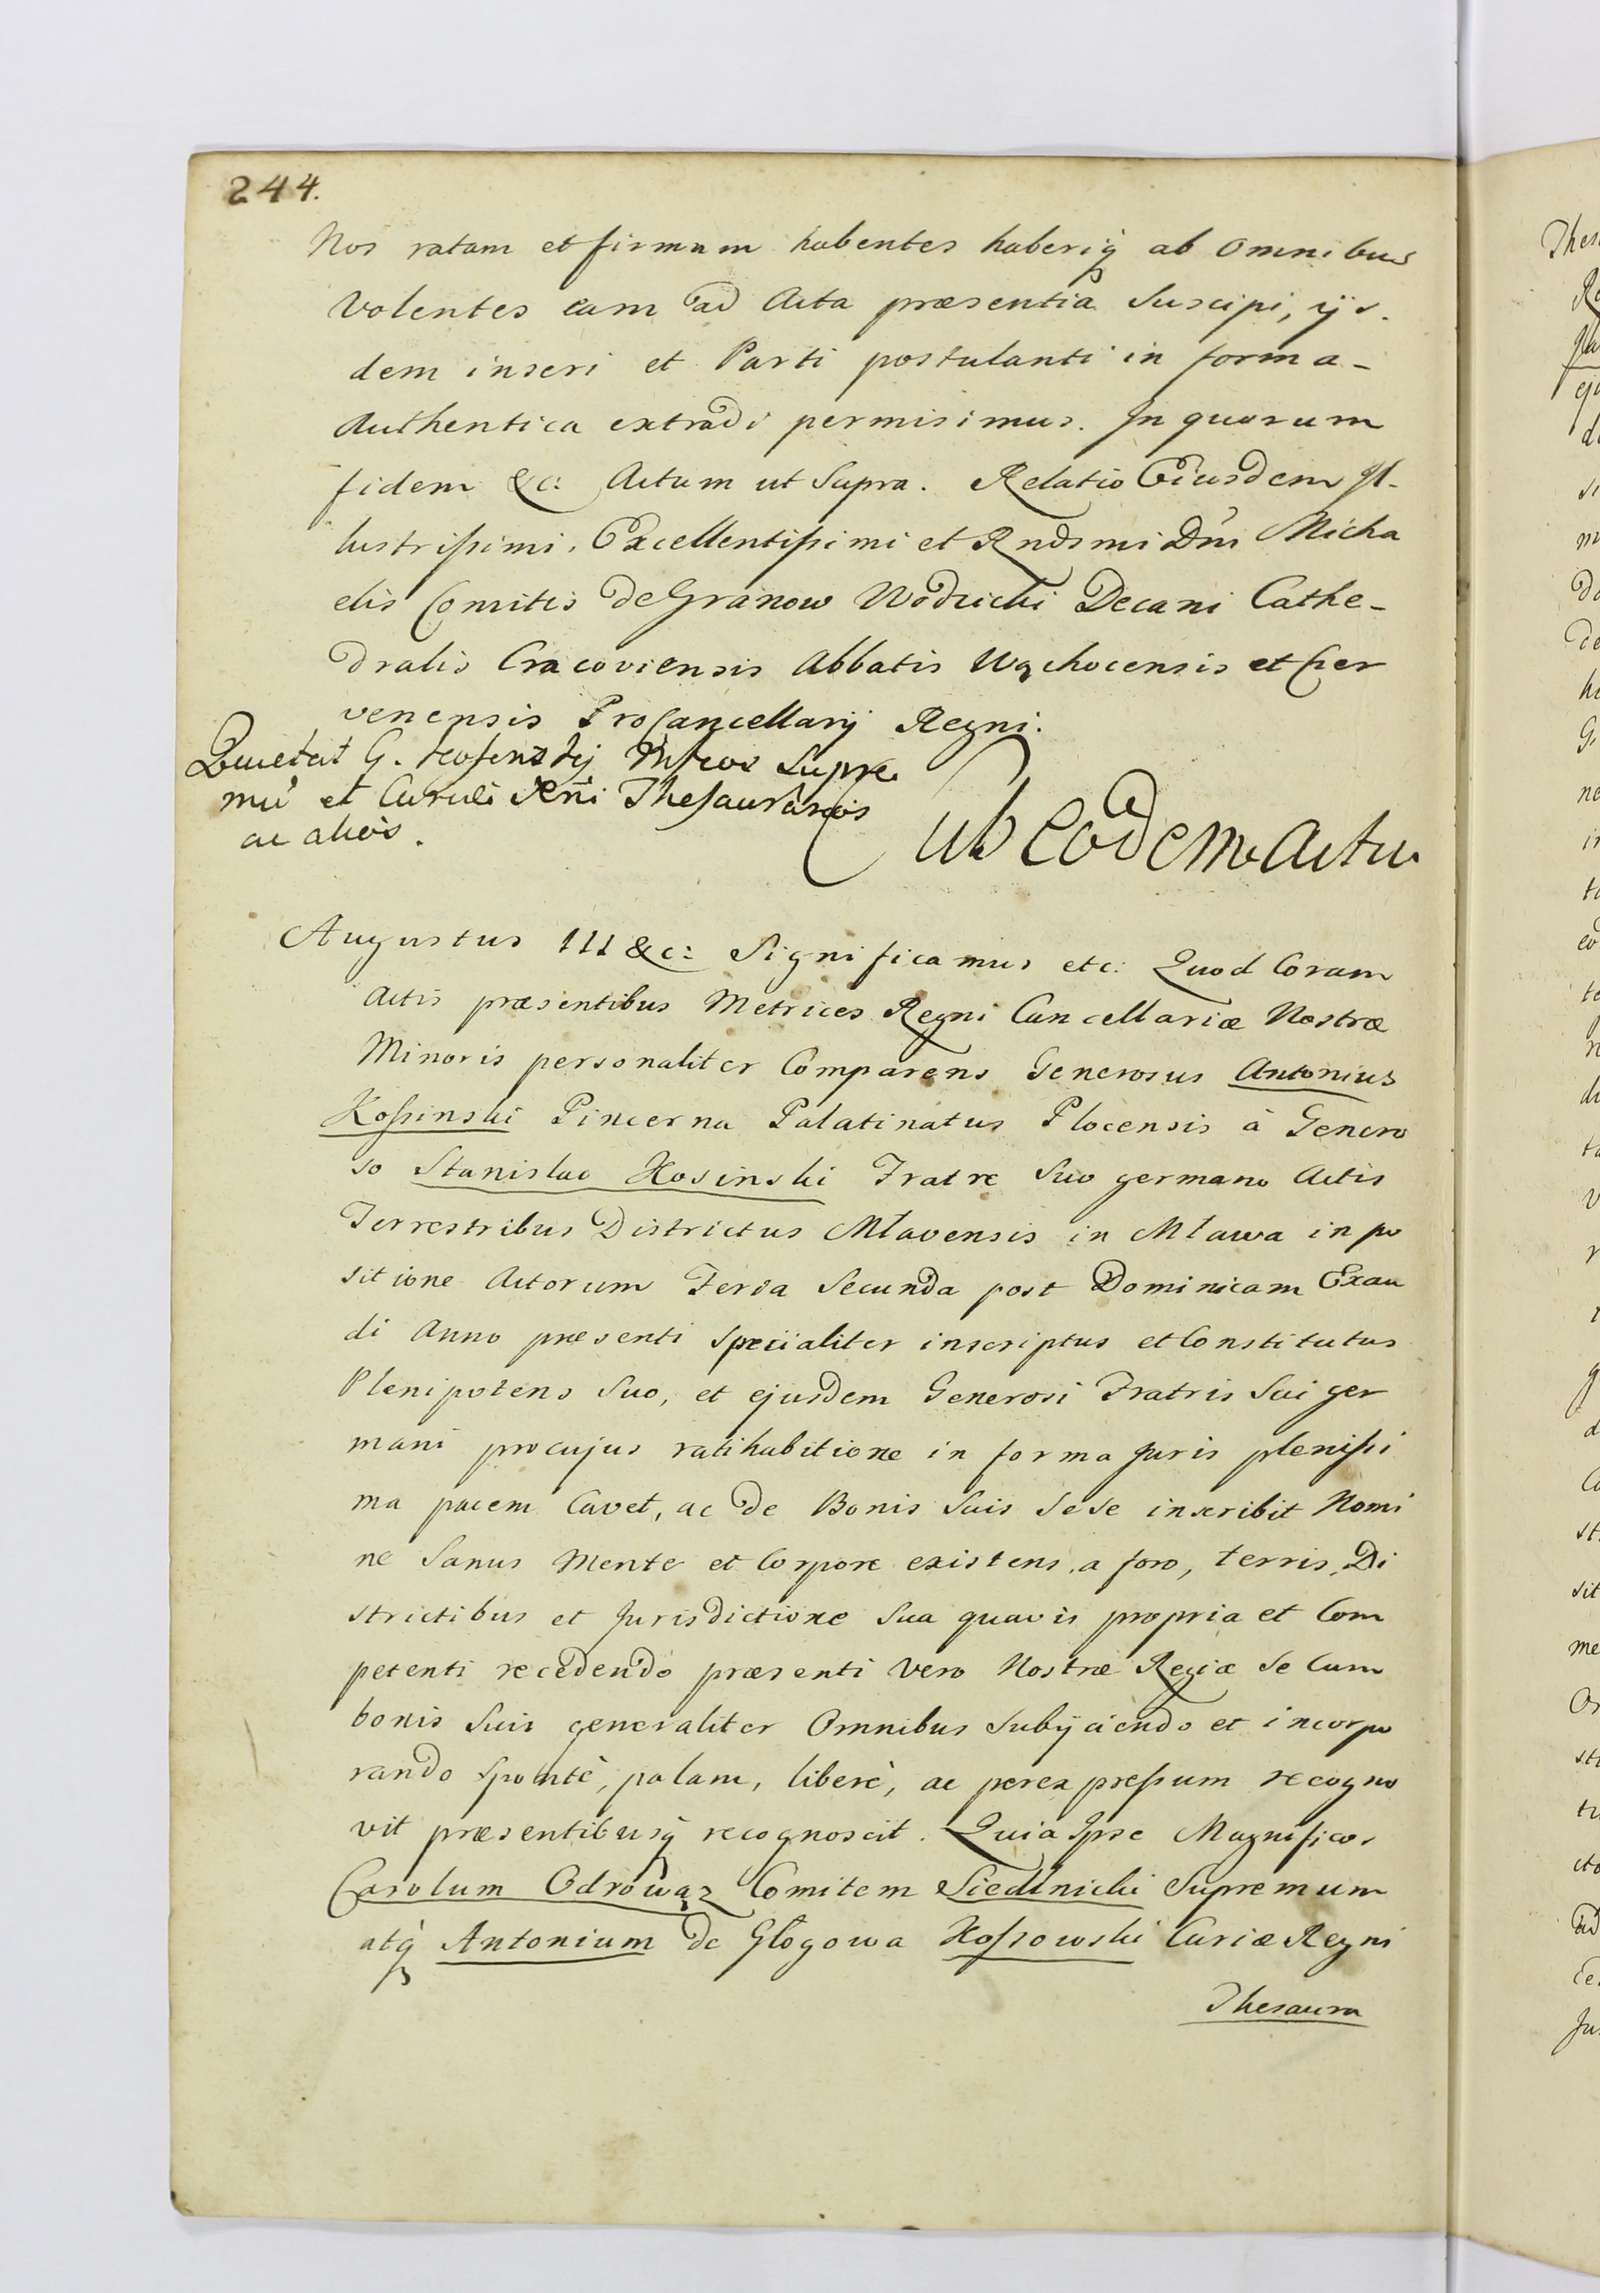 244.
Nos ratam et firmam habentes haberiq ab Omnibus
Volentes eam ad Acta præsentia Suscipi, ijs-
dem inseri et Parti postulanti in forma-
Authentica extradi permisimus. In quorum
fidem &c: Actum ut Supra. Relatio Eiusdem Il-
lustrissimi, Excellentissimi et Rndsmi Dni Micha
elis Comitis de Granow Wodzicki Decani Cathe-
dralis Cracoviensis Abbatis Wąchocensis et Czer
venensis ProCancellarij Regni.
Quietat G. Kossinskij Mfcos Supre
mū et Curiæ Regni Thesaurarios
ac alios.
Sub eodem Actu
Augustus III &c: Significamus etc: Quod Coram
Actis præsentibus Metrices Regni Cancellariæ Nostræ
Minoris personaliter Comparens Generosus Antonius
Kossinski Pincerna Palatinatus Plocensis à Genero
so Stanislao Kosinski Fratre Suo germano Actis
Terrestribus Districtus Mlavensis in Mława in po
sitione Actorum Feria Secunda post Dominicam Exau
di Anno præsenti Specialiter inscriptus et Constitutus
Plenipotens Suo, et ejusdem Generosi Fratris Sui ger
mani pro cujus ratihabitione in forma Juris plenissi
ma pacem Cavet, ac de Bonis Suis Sese inscribit Nomi
ne Sanus Mente et Corpore existens, a foro, terris, Di
strictibus et Jurisdictione Sua quavis propria et Com
petenti recedendo præsenti vero Nostræ Regiæ Se Cum
bonis Suis generaliter Omnibus Subijciendo et incorpo
rando Spontè, palam, liberè, ac per expressum recogno
vit præsentibusq recognoscit. Quia Ipse Magnificos
Carolum Odrowąz Comitem Siedlnicki Supremum
atq Antonium de Głogowa Kossowski Curiæ Regni
Thesaura